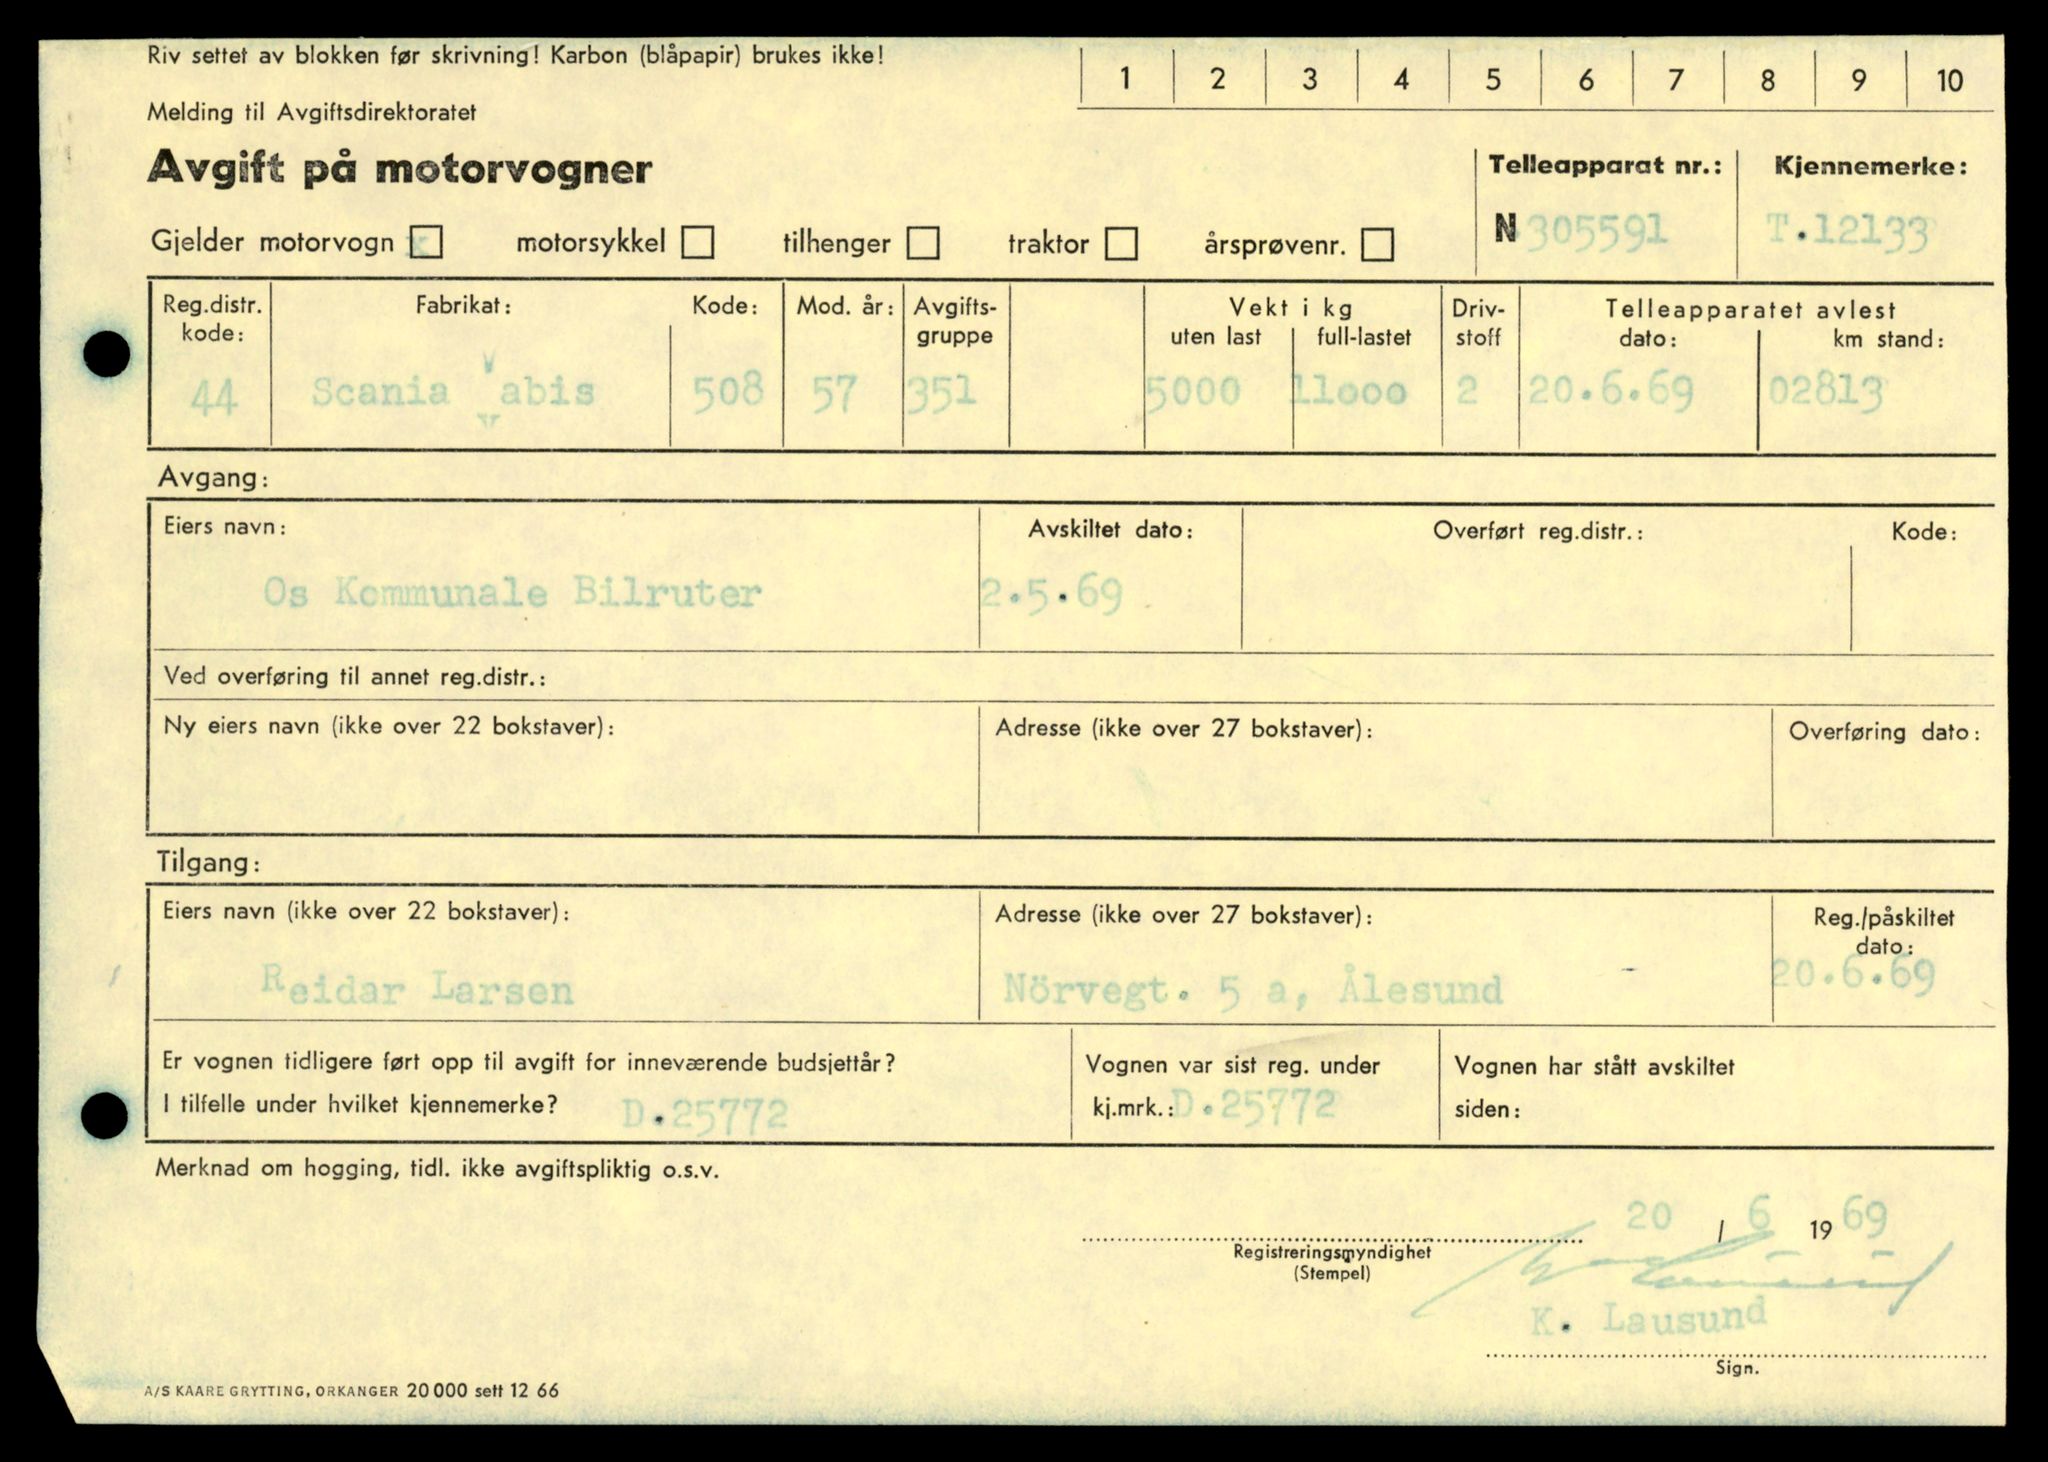 Riv settet av blokken før skrivning! Karbon (blåpapir) brukes ikke!
1 2 3 4 5 6 7 8 9 10
Melding til Avgiftsdirektoratet
Avgift på motorvogner
Telleapparat nr.: Kjennemerke:
N 305591 T.12133
Gjelder motorvogn x motorsykkel tilhenger traktor årsprøvenr.
Reg.distr. kode: Fabrikat: Kode: Mod. år: Avgifts-gruppe Vekt i kg uten last full-lastet Driv-stoff Telleapparatet avlest dato: km stand:
44 Scania Vabis 508 57 351 5000 11000 2 20.6.69 02813
Avgang:
Eiers navn: Avskiltet dato: Overført reg.distr.: Kode:
Os Kommunale Bilruter 2.5.69
Ved overføring til annet reg.distr.:
Ny eiers navn (ikke over 22 bokstaver): Adresse (ikke over 27 bokstaver): Overføring dato:
Tilgang:
Eiers navn (ikke over 22 bokstaver): Adresse (ikke over 27 bokstaver): Reg./påskiltet dato:
Reidar Larsen Nörvegt. 5 a, Ålesund 20.6.69
Er vognen tidligere ført opp til avgift for inneværende budsjettår? Vognen var sist reg. under Vognen har stått avskiltet
I tilfelle under hvilket kjennemerke? D.25772 kj.mrk.: D.25772 siden:
Merknad om hogging, tidl. ikke avgiftspliktig o.s.v.
20 / 6 1969
Registreringsmyndighet
(Stempel)
K. Lausund
Sign.
A/S KAARE GRYTTING, ORKANGER 20 000 sett 12 66